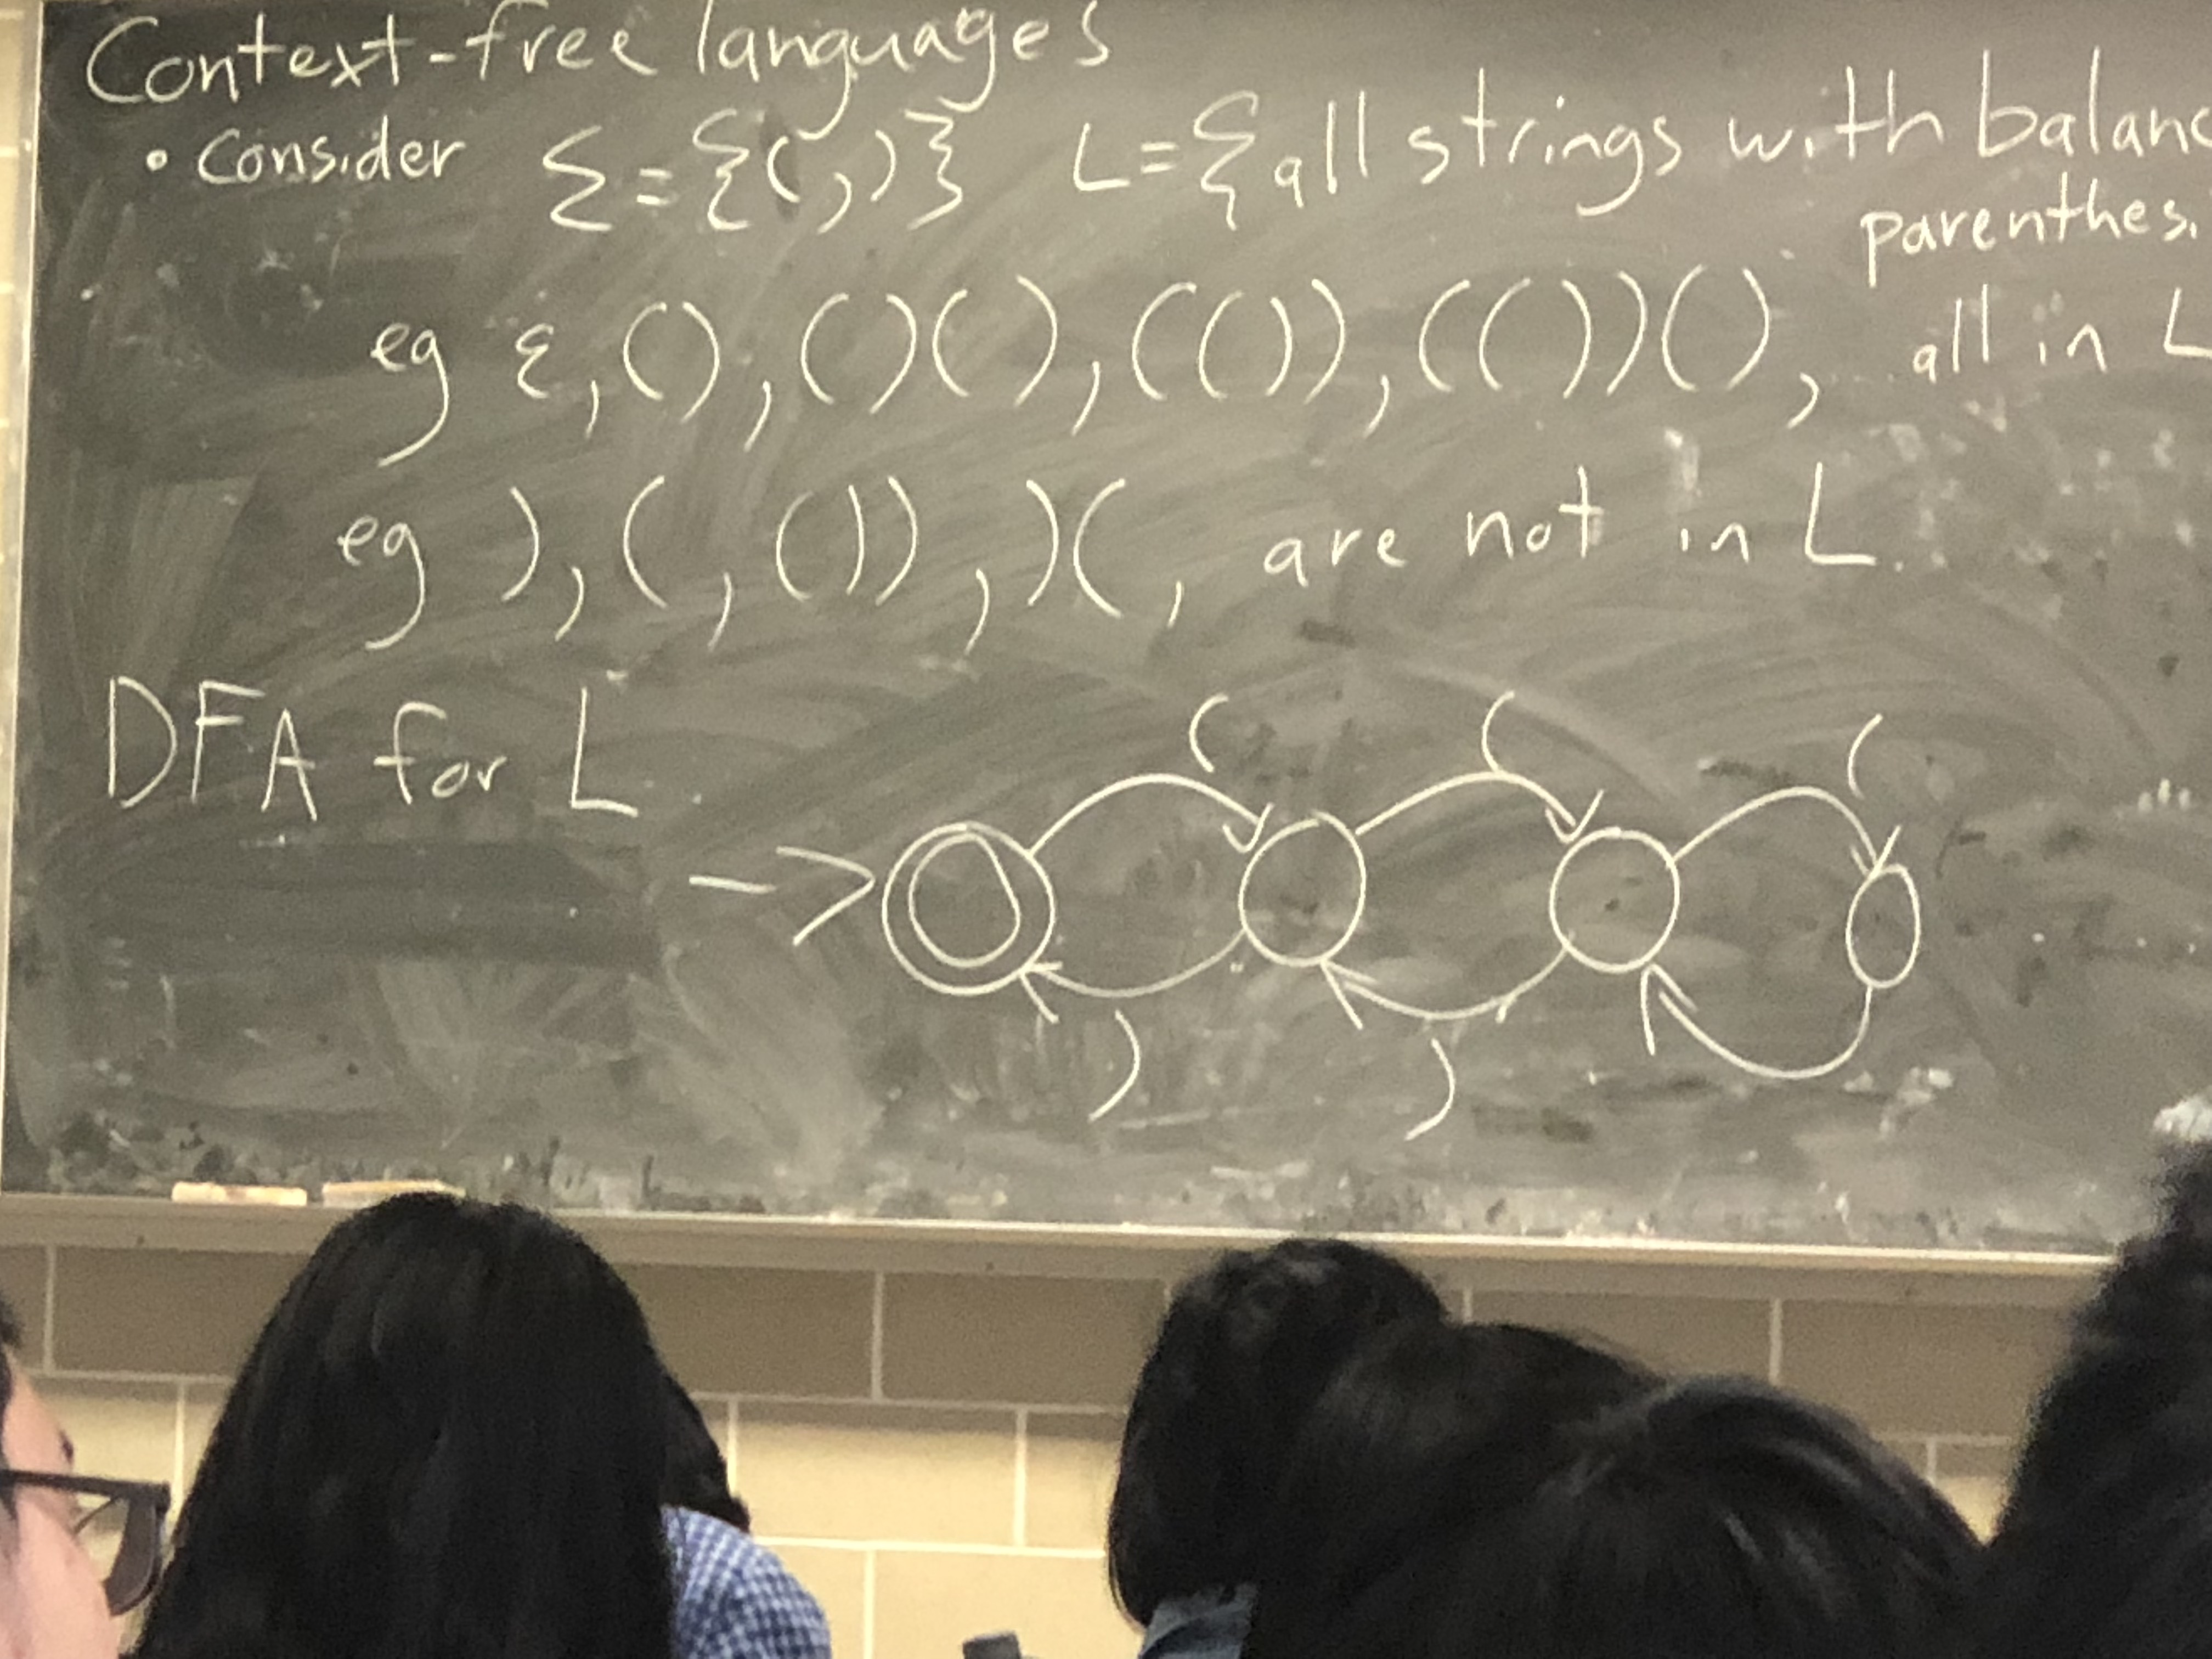 Context-free languages
• Consider Σ={(,)} L={all strings with balanc
parenthes.
eg ε,(),()(),(()),(())(), ... all in L
eg ),(,()),)(, are not in L.
DFA for L
( ( (
) )